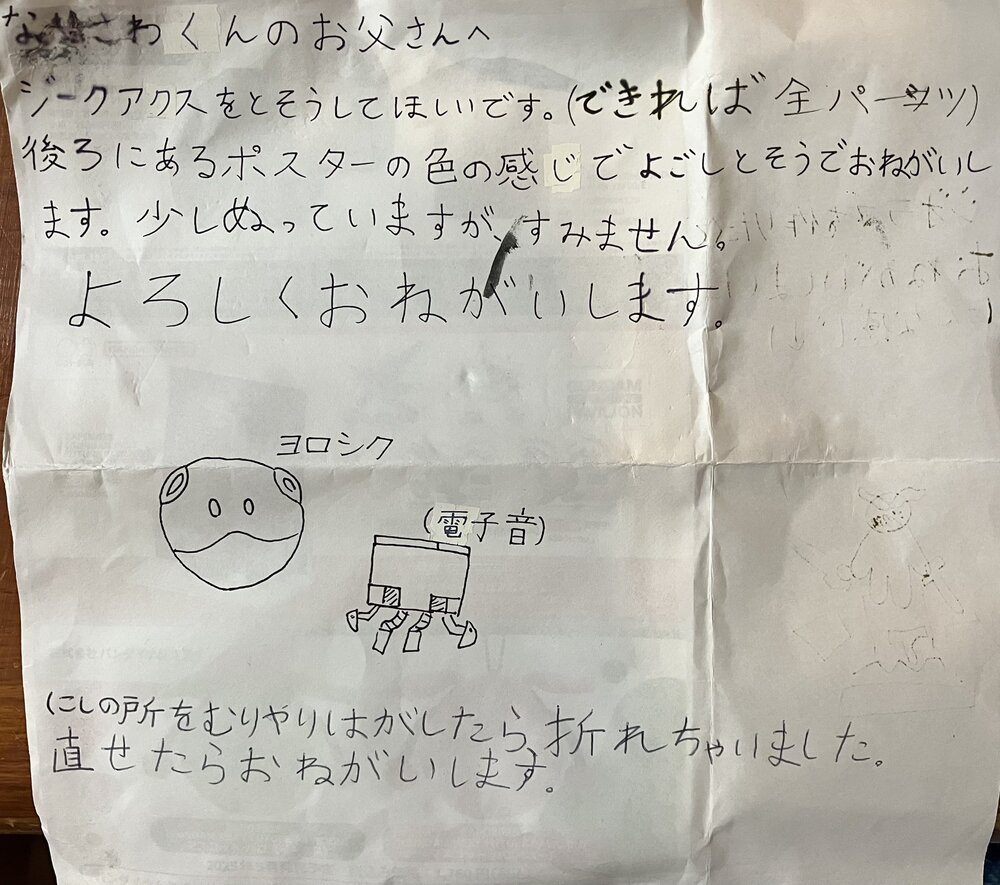 さわくんのお父さんへ
ジークアクスをとそうしてほしいです。(できれば全パーツ)
後ろにあるポスターの色の感じでよごしとそうでおねがいし
ます。少しぬっていますが、すみません。
よろしくおねがいします。
ヨロシク
(電子音)
(こしの所をむりやりはがしたら、折れちゃいました。
直せたらおねがいします。